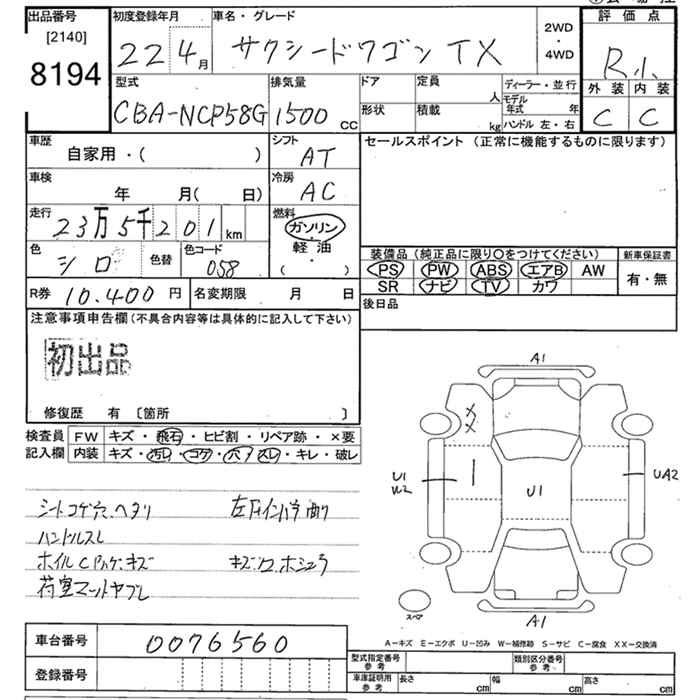 出品番号 初度登録年月 車名・グレード 2WD・4WD 評価点
[2140]
8194 22 4月 サクシードワゴン TX R小
型式 排気量 ドア 定員 人 ディーラー・並行 外装 内装
CBA-NCP58G 1500cc 形状 積載 kg モデル年式 年 C C
ハンドル 左・右
車歴 シフト セールスポイント (正常に機能するものに限ります)
自家用・( ) AT
車検 冷房
年 月( 日) AC
走行 燃料
23万5千201km ガソリン
色 色替 色コード 軽油
シロ 058 ( )
装備品 (純正品に限り〇をつけてください) 新車保証書
PS PW ABS エアB AW 有・無
SR ナビ TV カワ
R券 10.400円 名変期限 月 日 後日品
注意事項申告欄(不具合内容等は具体的に記入して下さい)
初出品
修復歴 有 〔箇所 〕
検査員 FW キズ・飛石・ヒビ割・リペア跡・×要
記入欄 内装 キズ・汚レ・コゲ・穴・スレ・キレ・破レ
シートコゲ穴.ヘタリ
ハンドルスレ
荷室マットヤブレ
A1
U1
W2
U1
UA2
スペア
A1
車台番号 0076560
A-キズ E-エクボ U-凹み W-補修跡 S-サビ C-腐食 XX-交換済
登録番号
型式指定番号 参考 類別区分番号 参考
車庫証明用 参考 長さ cm 幅 cm 高さ cm